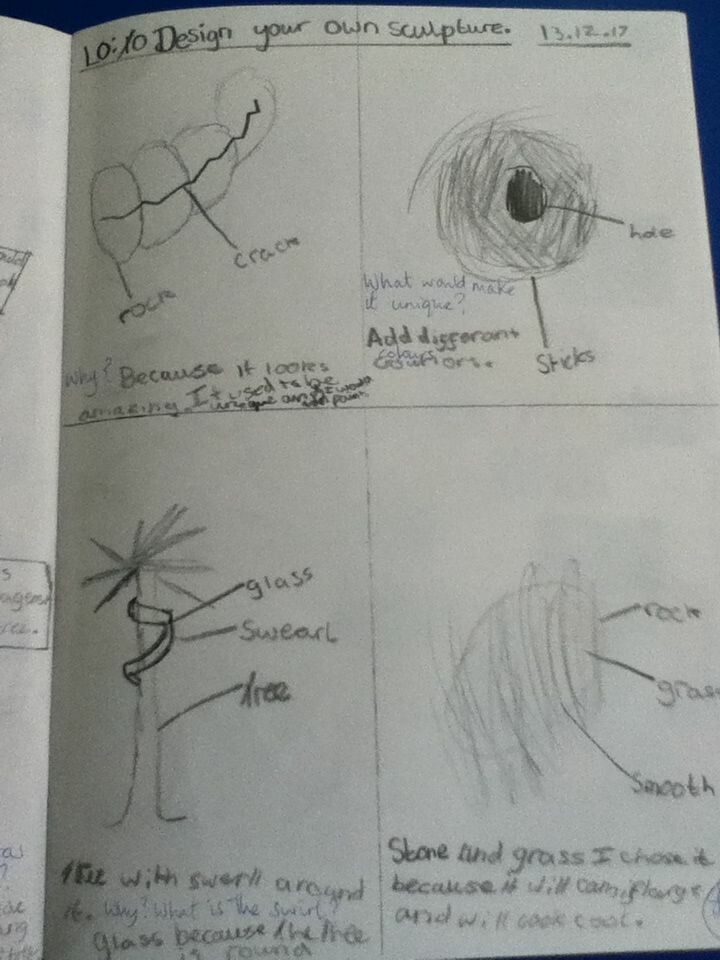 LO:To Design your own sculpture. 13.12.17
crack
rock
Why? Because it lookes
amazing. It used to be
unique and I would
add paint
hole
What would make
it unique?
Add differant
colours
Sticks
glass
Swearl
tree
tree with swerll around
it. Why? What is the swirl?
glass because the tree
is round
rock
grass
Smooth
Stone and grass I chose it
because it will camiflarge
and will look cool.